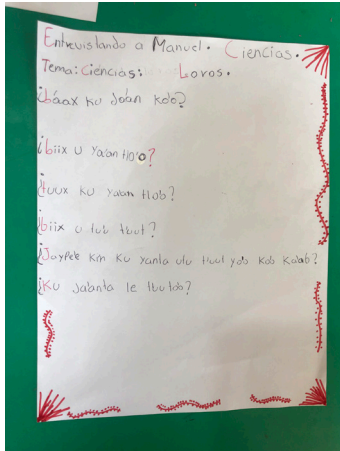 Entrevistando a Manuel. Ciencias.
Tema: Ciencias: Loros.
¿báax ku Joán kób?
¿biix u yaʼan tlob?
¿tuux ku yaan tlob?
¿biix u tub tuut?
¿Jaypéé km ku yanta ulu tuul yob kob kabab?
¿Ku Jabnta le tuu tob?